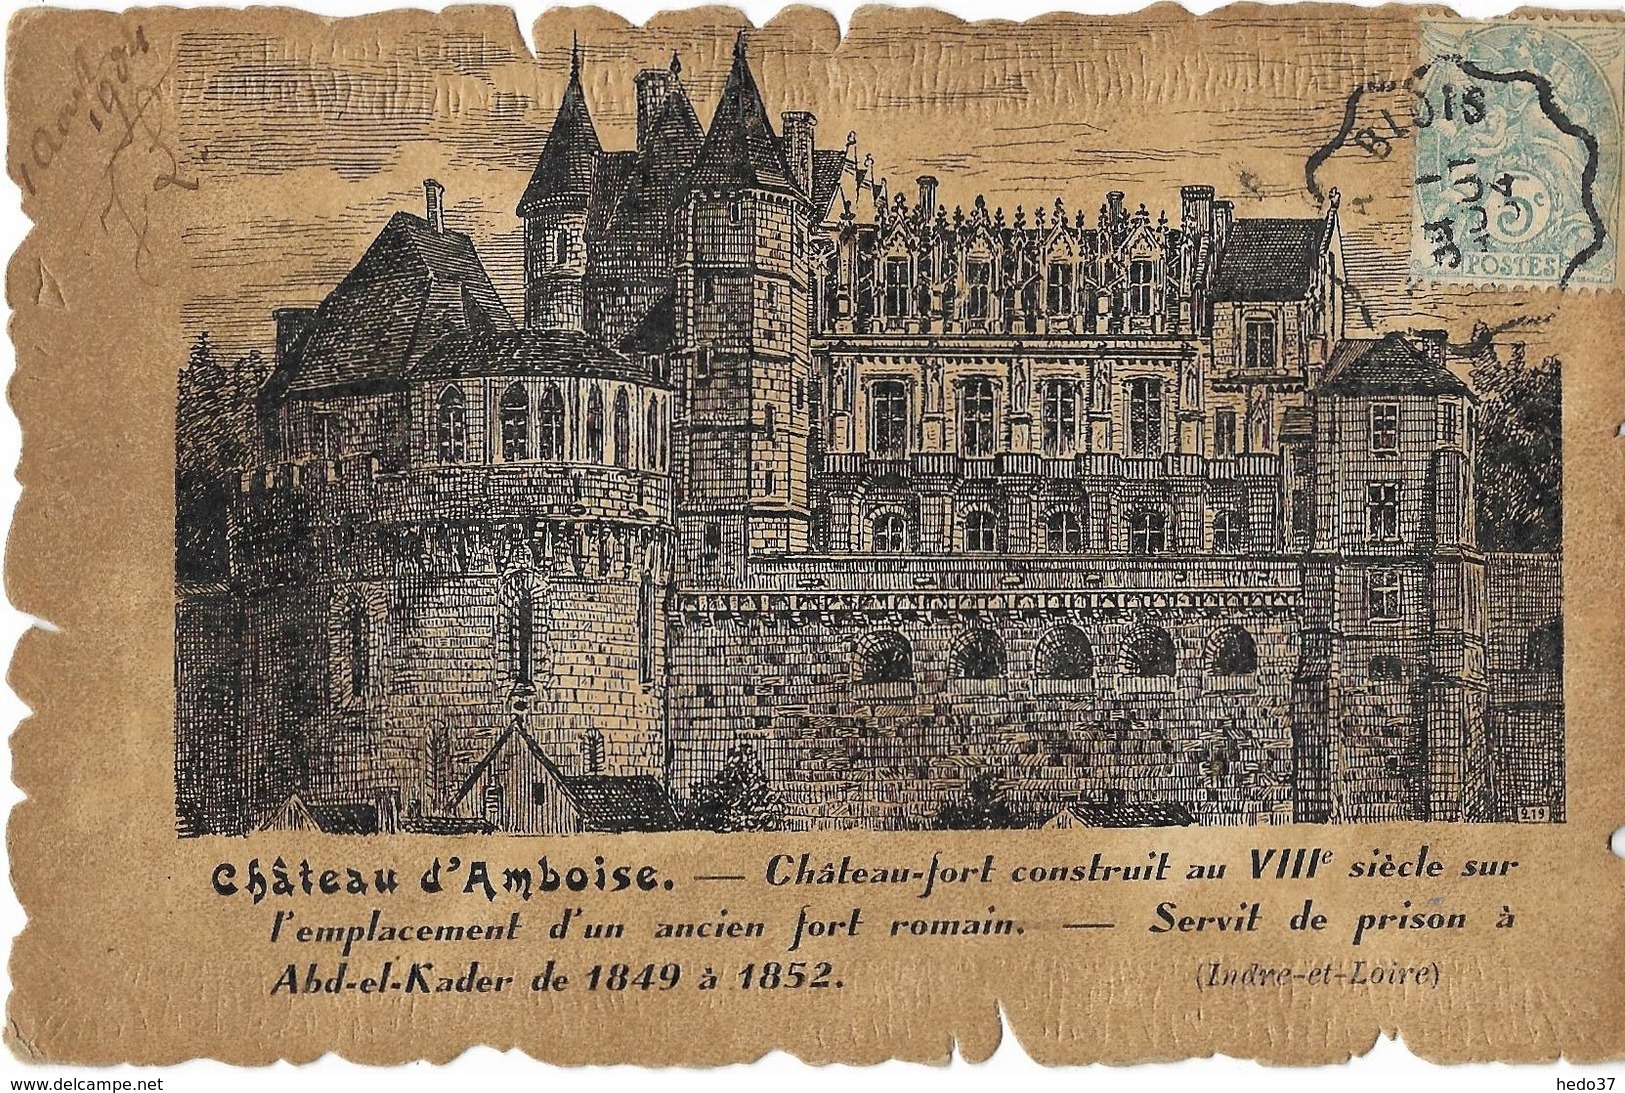 1 Aout
1904
BLOIS
5c
POSTES
219
Château d'Amboise. — Château-fort construit au VIIIe siècle sur
l'emplacement d'un ancien fort romain. — Servit de prison à
Abd-el-Kader de 1849 à 1852. (Indre-et-Loire)
www.delcampe.net
hedo37